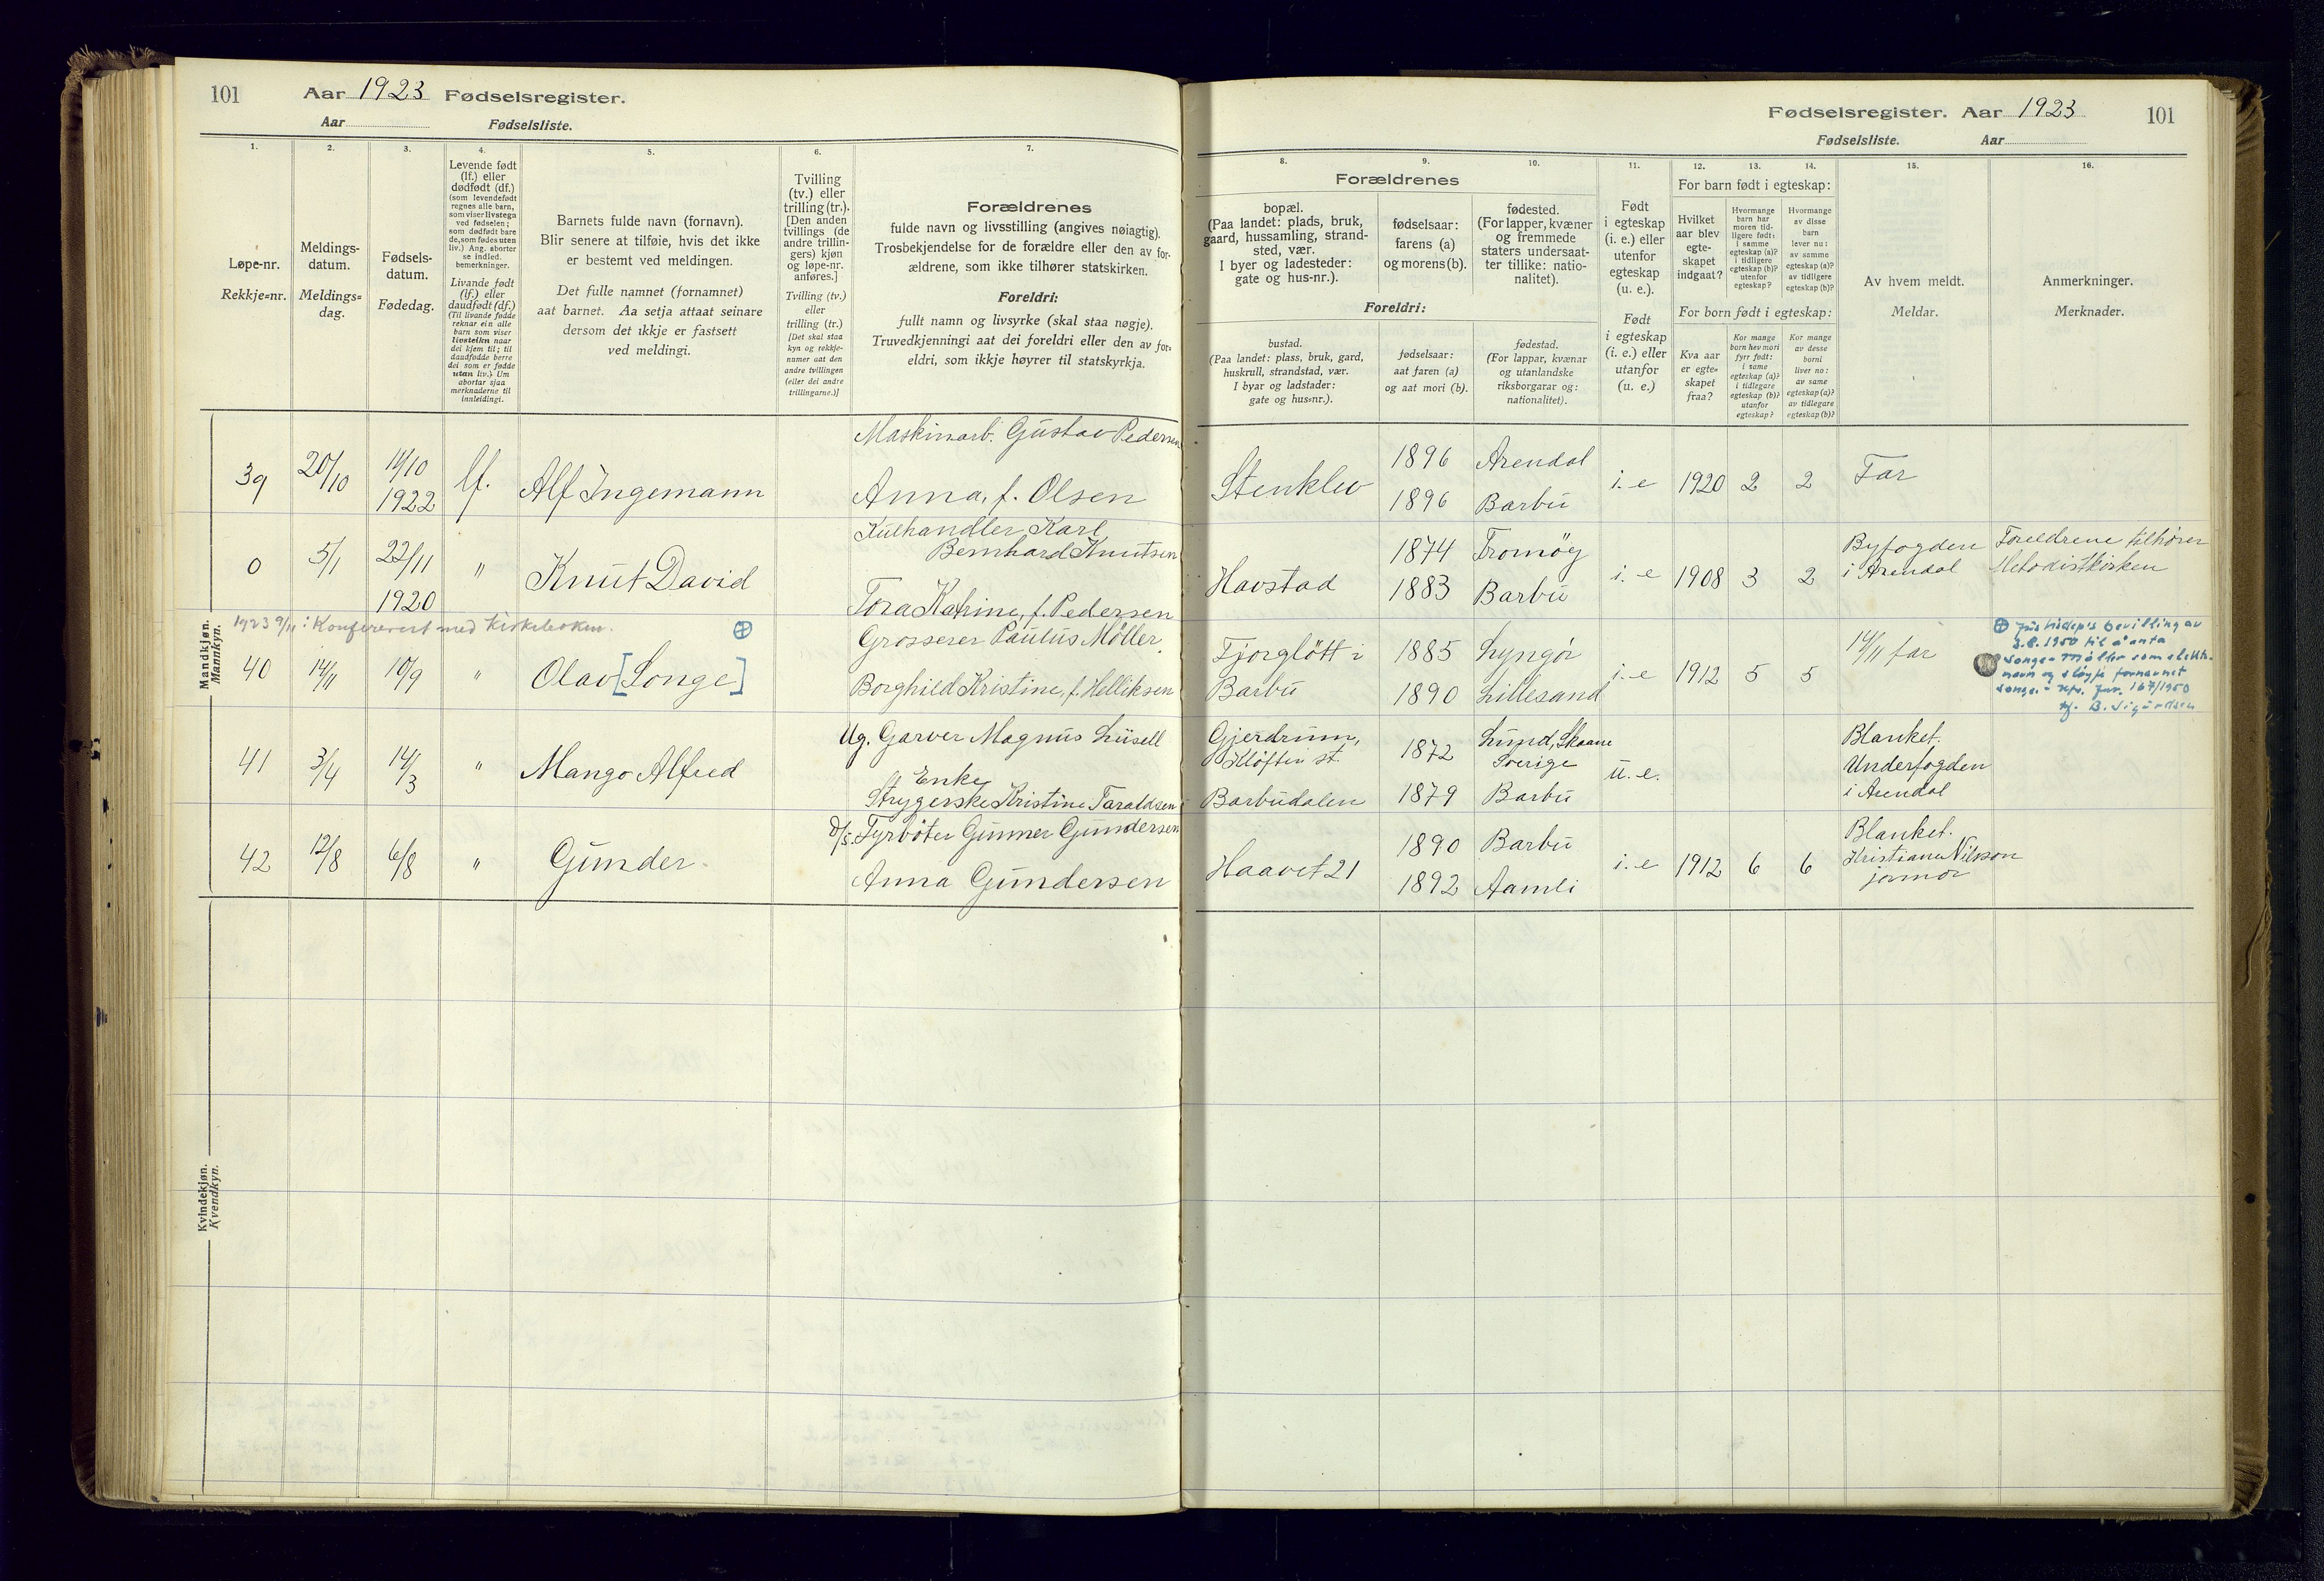 101 Aar 1923 Fødselsregister.
Aar Fødselsliste.
Fødselsregister. Aar 1923 101
Fødselsliste. Aar
1. 2. 3. 4. 5. 6. 7.
Løpe-nr.
Rekkje=nr.
Meldings-
datum.
Meldings=
dag.
Fødsels-
datum.
Fødedag.
Levende født
(lf.) eller
dødfødt (df.)
(som levendefødt
regnes alle barn,
som viser livstegn
ved fødselen;
som dødfødt bare
de, som fødes uten
liv.) Ang. aborter
se indled.
bemerkninger.
Livande født
(lf.) eller
daudfødt (df.)
(Til livande fødde
reknar ein alle
born som viser
livsteikn naar
dei kjem til; til
daudfødde berre
dei som er fødde
utan liv.) Um
abortar sjaa
merknaderne til
innleidingi.
Barnets fulde navn (fornavn).
Blir senere at tilføie, hvis det ikke
er bestemt ved meldingen.
Det fulle namnet (fornamnet)
aat barnet. Aa setja attaat seinare
dersom det ikkje er fastsett
ved meldingi.
Tvilling
(tv.) eller
trilling (tr.).
[Den anden
tvillings (de
andre trillin-
gers) kjøn
og løpe-nr.
anføres.]
Tvilling (tv.)
eller
trilling (tr.)
[Det skal staa
kyn og rekkje-
numer aat den
andre tvillingen
(eller dei andre
trillingarne.)]
Forældrenes
fulde navn og livsstilling (angives nøiagtig).
Trosbekjendelse for de forældre eller den av for-
ældrene, som ikke tilhører statskirken.
Foreldri:
fullt namn og livsyrke (skal staa nøgje).
Truvedkjenningi aat dei foreldri eller den av for-
eldri, som ikkje høyrer til statskyrkja.
8. 9. 10. 11. 12. 13. 14. 15. 16.
Forældrenes
bopæl.
(Paa landet: plads, bruk,
gaard, hussamling, strand-
sted, vær.
I byer og ladesteder:
gate og hus-nr.).
fødselsaar:
farens (a)
og morens (b).
fødested.
(For lapper, kvæner
og fremmede
staters undersaat-
ter tillike: natio-
nalitet).
Foreldri:
bustad.
(Paa landet: plass, bruk, gard,
huskrull, strandstad, vær.
I byar og ladstader:
gate og hus=nr.).
fødselsaar:
aat faren (a)
og aat mori (b).
fødestad.
(For lappar, kvænar
og utanlandske
riksborgarar og:
nationalitet).
Født
i egteskap
(i. e.) eller
utenfor
egteskap
(u. e.).
Født
i egteskap
(i. e.) eller
utanfor
(u. e.)
For barn født i egteskap:
Hvilket
aar blev
egte-
skapet
indgaat?
Hvormange
barn har
moren tid-
ligere født:
i samme
egteskap (a)?
i tidligere
egteskap (b)?
utenfor
egteskap?
Hvormange
av disse
barn
lever nu:
av samme
egteskap (a)?
av tidligere
egteskap (b)?
For born født i egteskap:
Kva aar
er egte=
skapet
fraa?
Kor mange
born hev mori
fyrr født:
i same
egteskap (a)?
i tidlegare
egteskap (b)?
utanfor
egteskap?
Kor mange
av desse
borni
liver no:
av same
egteskap (a)?
av tidlegare
egteskap (b)?
Av hvem meldt.
Meldar.
Anmerkninger.
Merknader.
Mandkjøn.
Mannkyn.
39 20/10 14/10 1922 lf. Alf Ingemann
Maskinarb. Gustav Pedersen
Anna, f. Olsen
Stenklev 1896 Arendal
1896 Barbu
i. e 1920 2 2 Far
0 5/1 22/11 1920 " Knut David
Kulhandler Karl
Bernhard Knutsen
Tora Katrine, f. Pedersen
Havstad 1874 Tromøy
1883 Barbu
i. e 1908 3 2
Byfogden
i Arendal
Foreldrene tilhører
Metodistkirken
1923 9/11: Konferert med kirkeboken.
40 14/11 10/9 " Olav [Songe]
Grosserer Paulus Møller.
Borghild Kristine, f. Helliksen
Fjorgløtt i
Barbu
1885 Lyngør
1890 Lillesand
i. e 1912 5 5 14/11 far
Justisdep's bevilling av
3.8. 1950 til å anta
Songe-Møller som slekts-
navn og sløyfe fornavnet
Songe. - Kfr. jnr. 167/1950
B. Sigurdsen
41 3/4 14/3 " Mango Alfred
Ug. Garver Magnus Lusell
Enke
Strygerske Kristine Taraldsen
Gjerdrum,
Kløften st.
Barbudalen
1872 Lund, Skaane
Sverige
1879 Barbu
u. e.
Blanket.
Underfogden
i Arendal
42 12/8 6/8 " Gunder
D/s. Fyrbøter Gunner Gundersen
Anna Gundersen
Haavet 21
1890 Barbu
1892 Aamli
i. e 1912 6 6
Blanket.
Kristiane Nilsson
jormor
Kvindekjøn.
Kvendkyn.